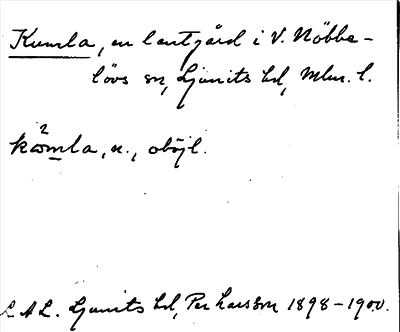 Kumla, en lantgård i V. Nöbbe-
lövs sn, Ljunits hd, Mlm. l.
kω²mla, n., oböjl.
L A L. Ljunits hd, Per Larsson 1898-1900.